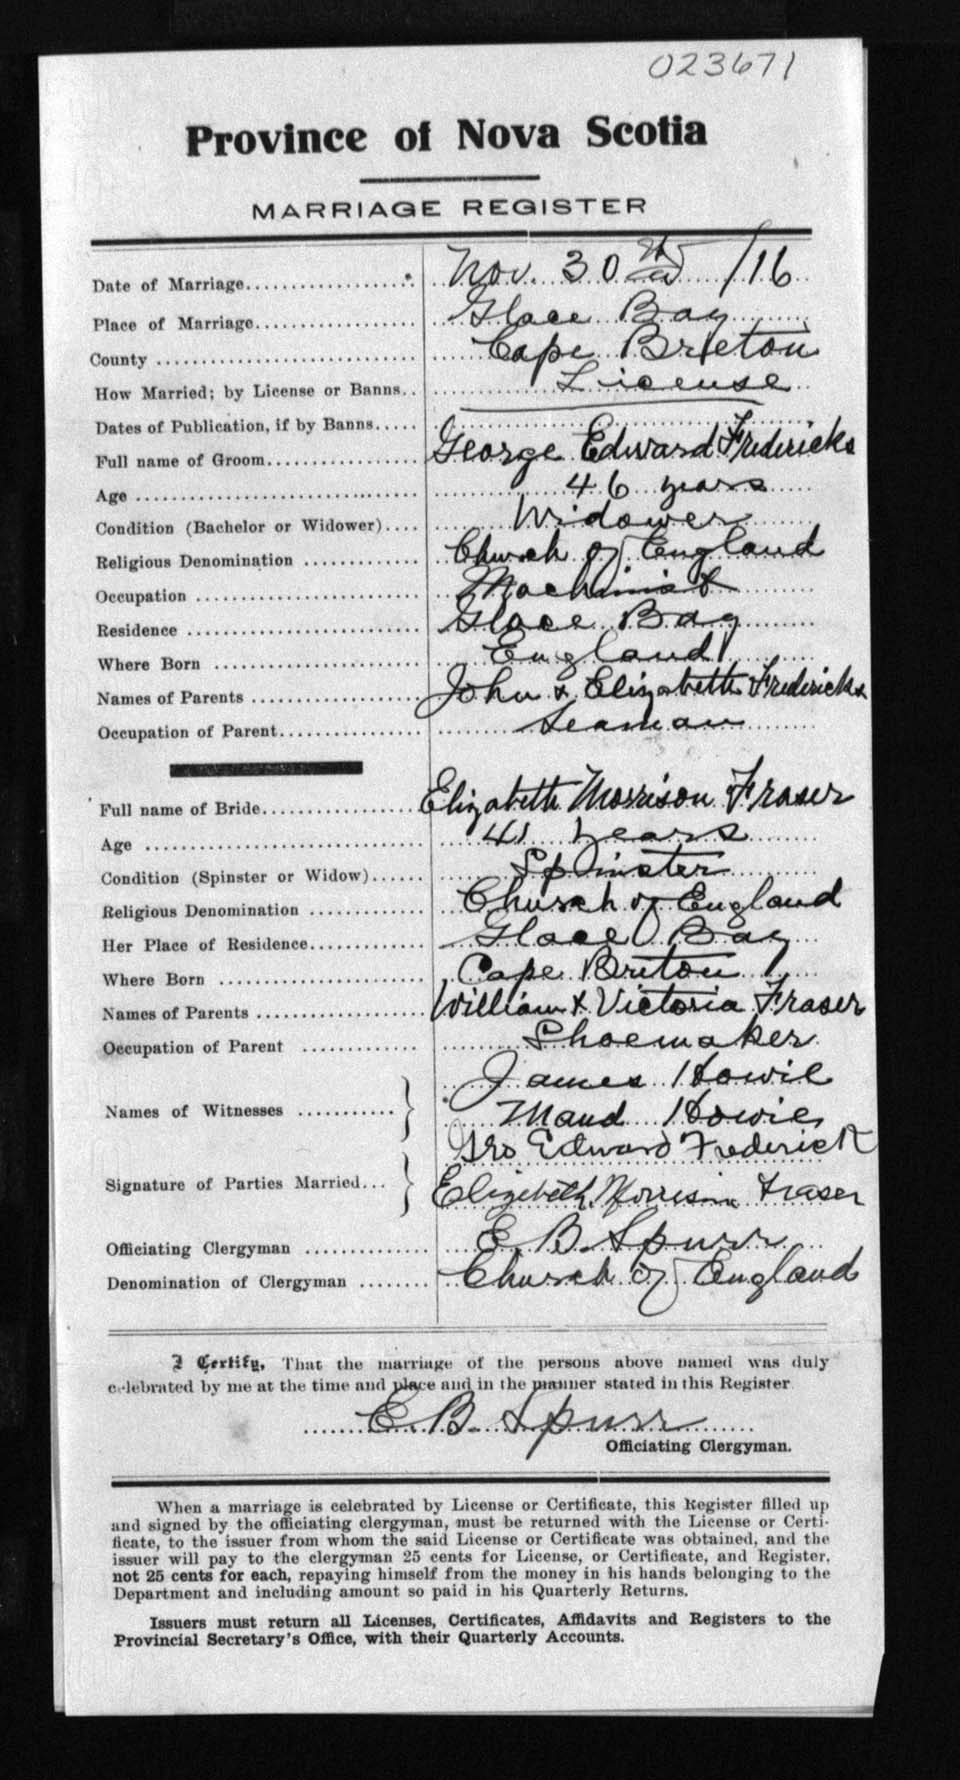 023671
Province of Nova Scotia
MARRIAGE REGISTER
Date of Marriage Nov. 30th /16
Place of Marriage Glace Bay
County Cape Breton
How Married; by License or Banns License
Dates of Publication, if by Banns
Full name of Groom George Edward Fredericks
Age 46 years
Condition (Bachelor or Widower) Widower
Religious Denomination Church of England
Occupation Machinist
Residence Glace Bay
Where Born England
Names of Parents John & Elizabeth Fredericks
Occupation of Parent Seaman
Full name of Bride Elizabeth Morrison Fraser
Age 41 years
Condition (Spinster or Widow) Spinster
Religious Denomination Church of England
Her Place of Residence Glace Bay
Where Born Cape Breton
Names of Parents William & Victoria Fraser
Occupation of Parent Shoemaker
James Howie
Names of Witnesses Maud Howie
Geo Edward Frederick
Signature of Parties Married Elizebeth Morrison Fraser
Officiating Clergyman E. B. Spurr
Denomination of Clergyman Church of England
I Certify, That the marriage of the persons above named was duly
celebrated by me at the time and place and in the manner stated in this Register
E. B. Spurr
Officiating Clergyman.
When a marriage is celebrated by License or Certificate, this Register filled up
and signed by the officiating clergyman, must be returned with the License or Certi-
ficate, to the issuer from whom the said License or Certificate was obtained, and the
issuer will pay to the clergyman 25 cents for License, or Certificate, and Register,
not 25 cents for each, repaying himself from the money in his hands belonging to the
Department and including amount so paid in his Quarterly Returns.
Issuers must return all Licenses, Certificates, Affidavits and Registers to the
Provincial Secretary's Office, with their Quarterly Accounts.